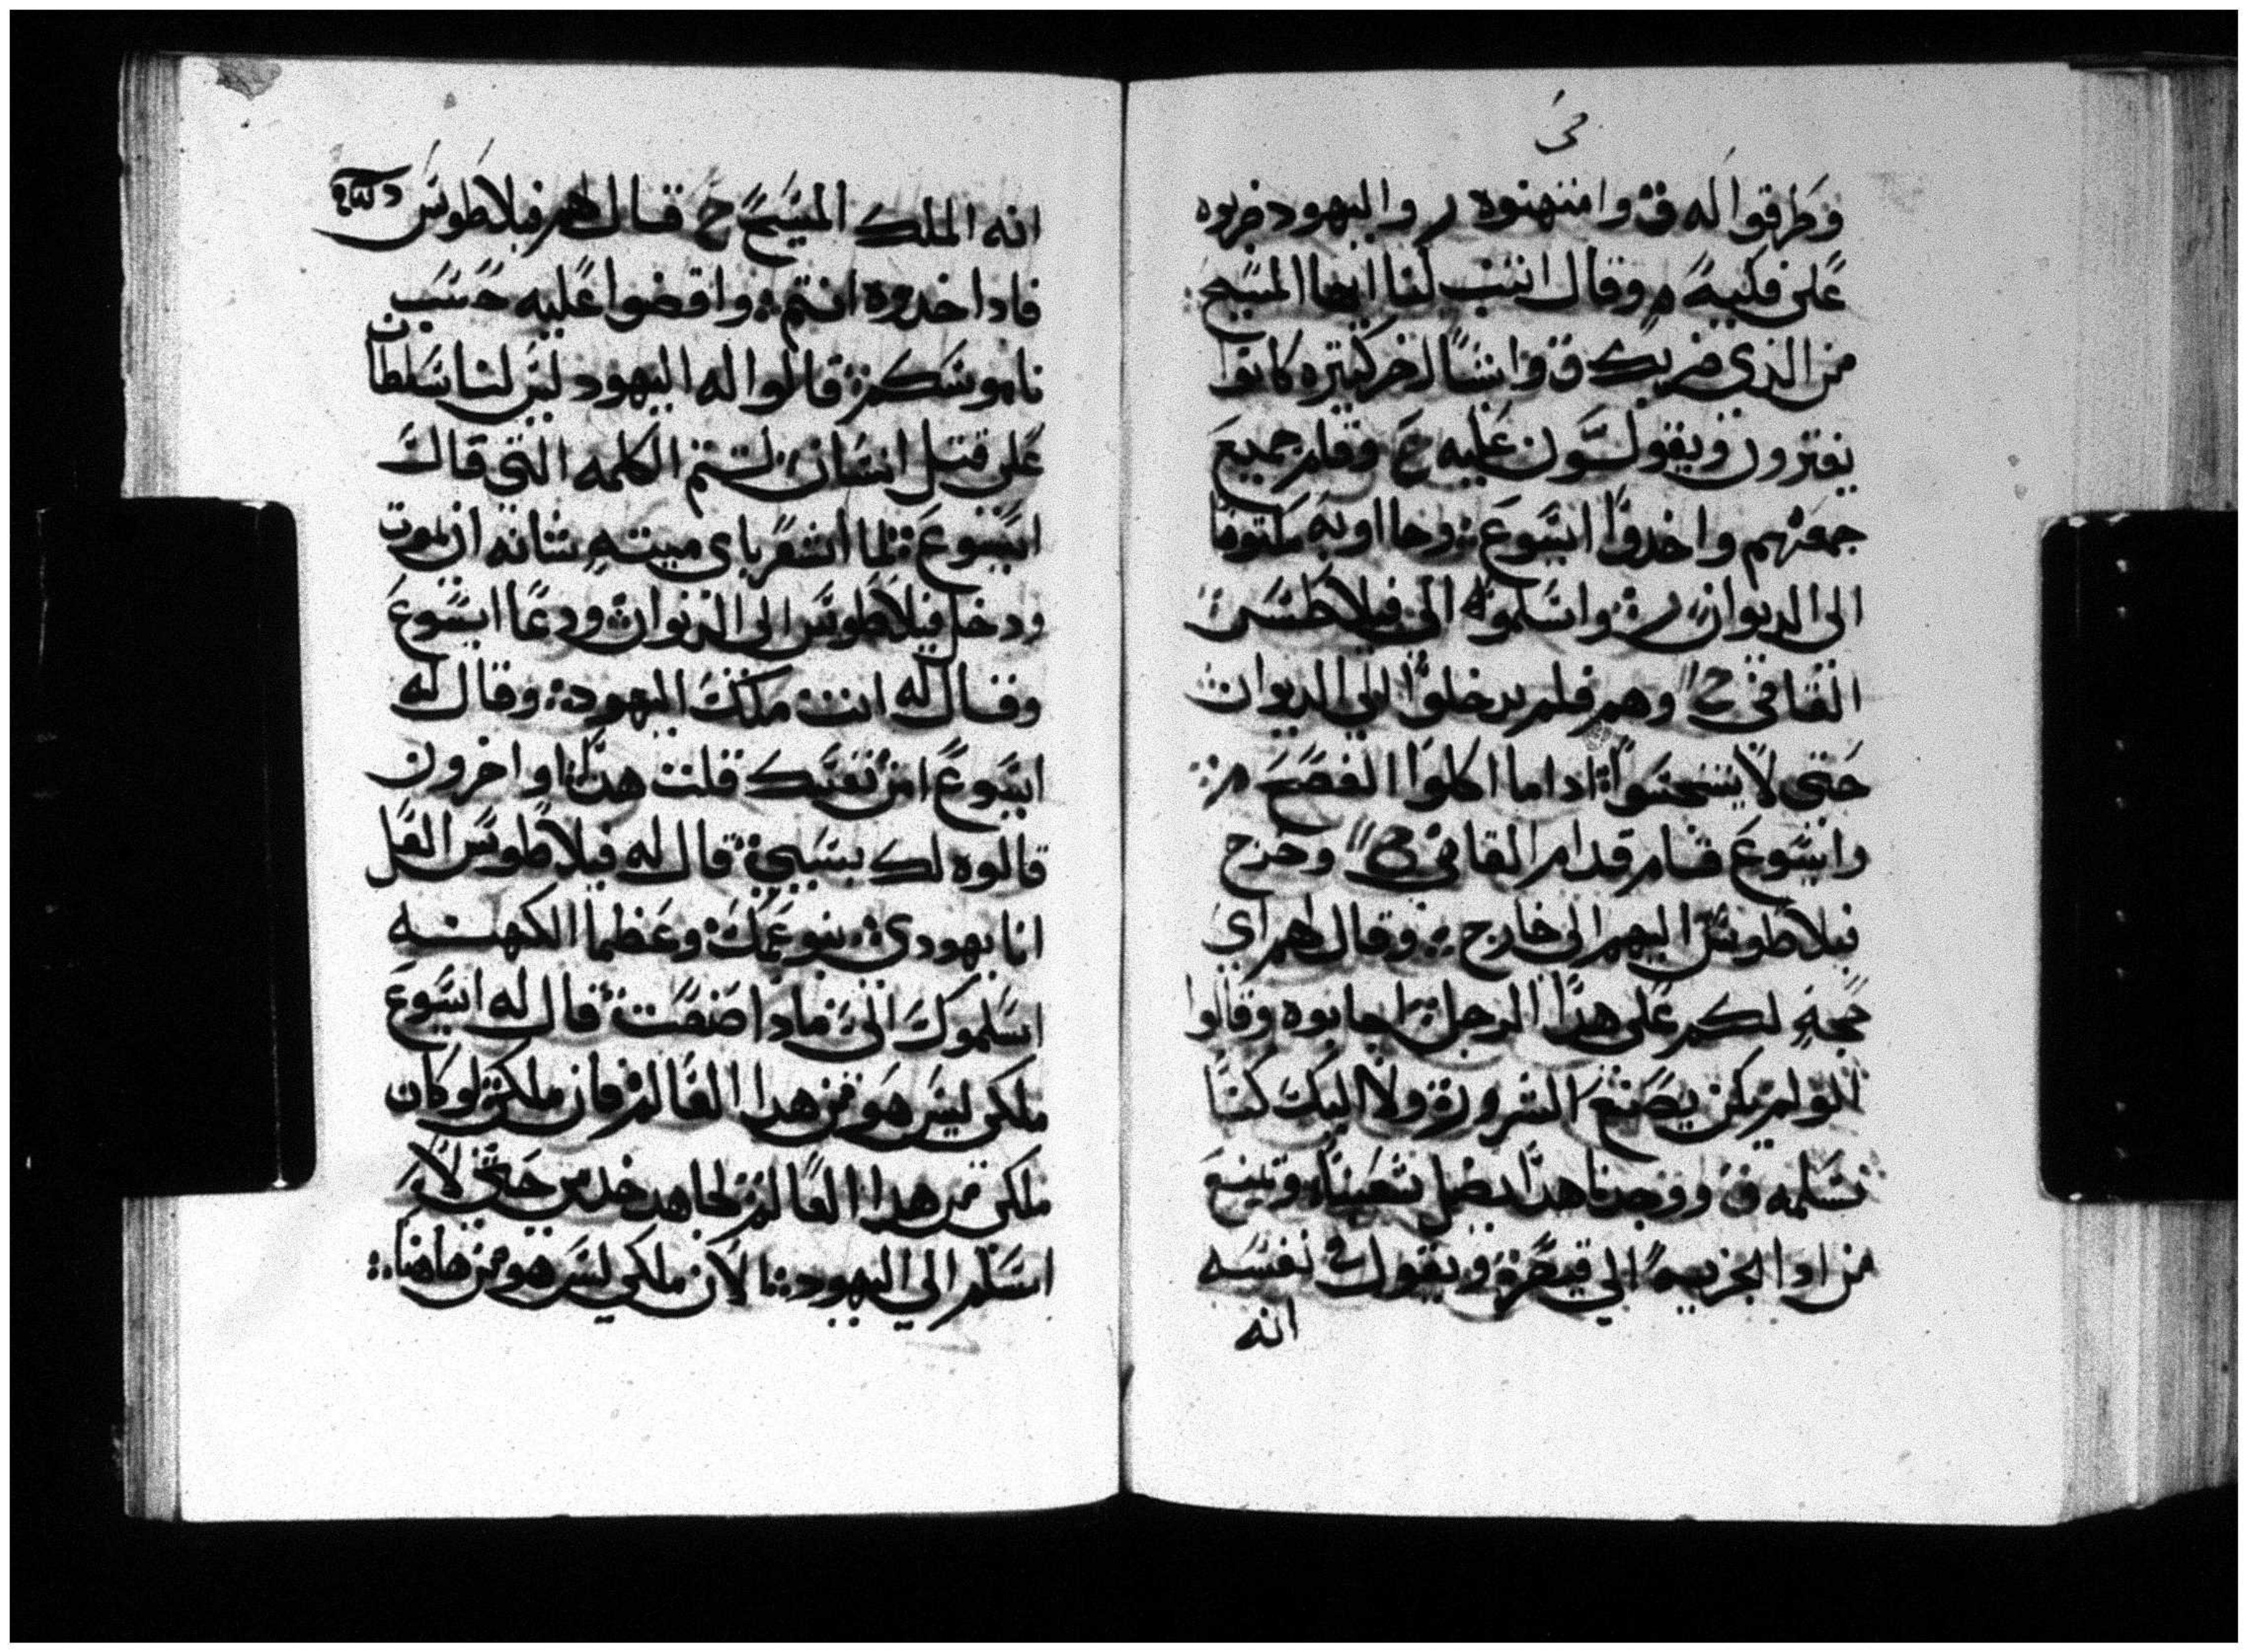 وطرقوا له ق وامنتهنوه ر واليهود ضربوه
على فكيه م وقال اتنب لنا ايها المسيح
من الذي ضربك ق وانشا اخر كتيره كانوا
يفترون ويقولون عليه ع وقام جميع
جمعتهم واخدوا ايسوع وجا اوبه مكتوفا
الى الديوان ر واسلموه الى فيلاطس
القاضي ح وهم فلم يدخلوا الى الديوان
حتى لا يتنجسوا ادا ما اكلوا الفصح م
وايسوع قام قدام القاضي ح وخرج
فيلاطوس اليهم الى خارج وقال لهم اي
حجةٍ لكم على هدا الرجل اجابوه وقالوا
للو لم يكن يصنع الشرور ولا اليك كنا
نسلمه ق ووجدنا هدا يضل شعبنا ويمنع
من ادا الجزيه الي قيصر ويقول نفسه
انه
انه الملك المسيح ح قال لهم فيلاطوس
فادا خدوه انتم واقضوا عليه حسب
ناموسكم قالوا له اليهود ليس لنا سلطان
على قتل انسان لتتم الكلمه التي قال
ايسوع لما اشعر باي ميتهِ شانه ان يموت
ودخل فيلاطوس الى الديوان ودعا ايسوع
وقال له انت ملك اليهود وقال له
ايسوع امن نفسك قلت هدا او اخرون
قالوه لك بسببي قال له فيلاطوس العل
انا يهودي بنو عمك وعظما الكهنه
اسلموك الى مادا صنعت قال له ايسوع
ملكي ليس هو من هدا العالم فان ملكي لو كان
ملكي من هدا العالم لجاهد خدمي حتى لا
اسلم الي اليهود لان ملكي ليس هو من هاهنا